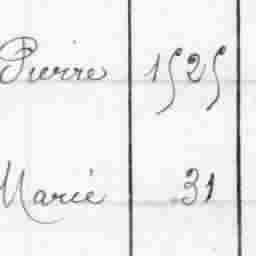 Pierre 1525
Marie 31